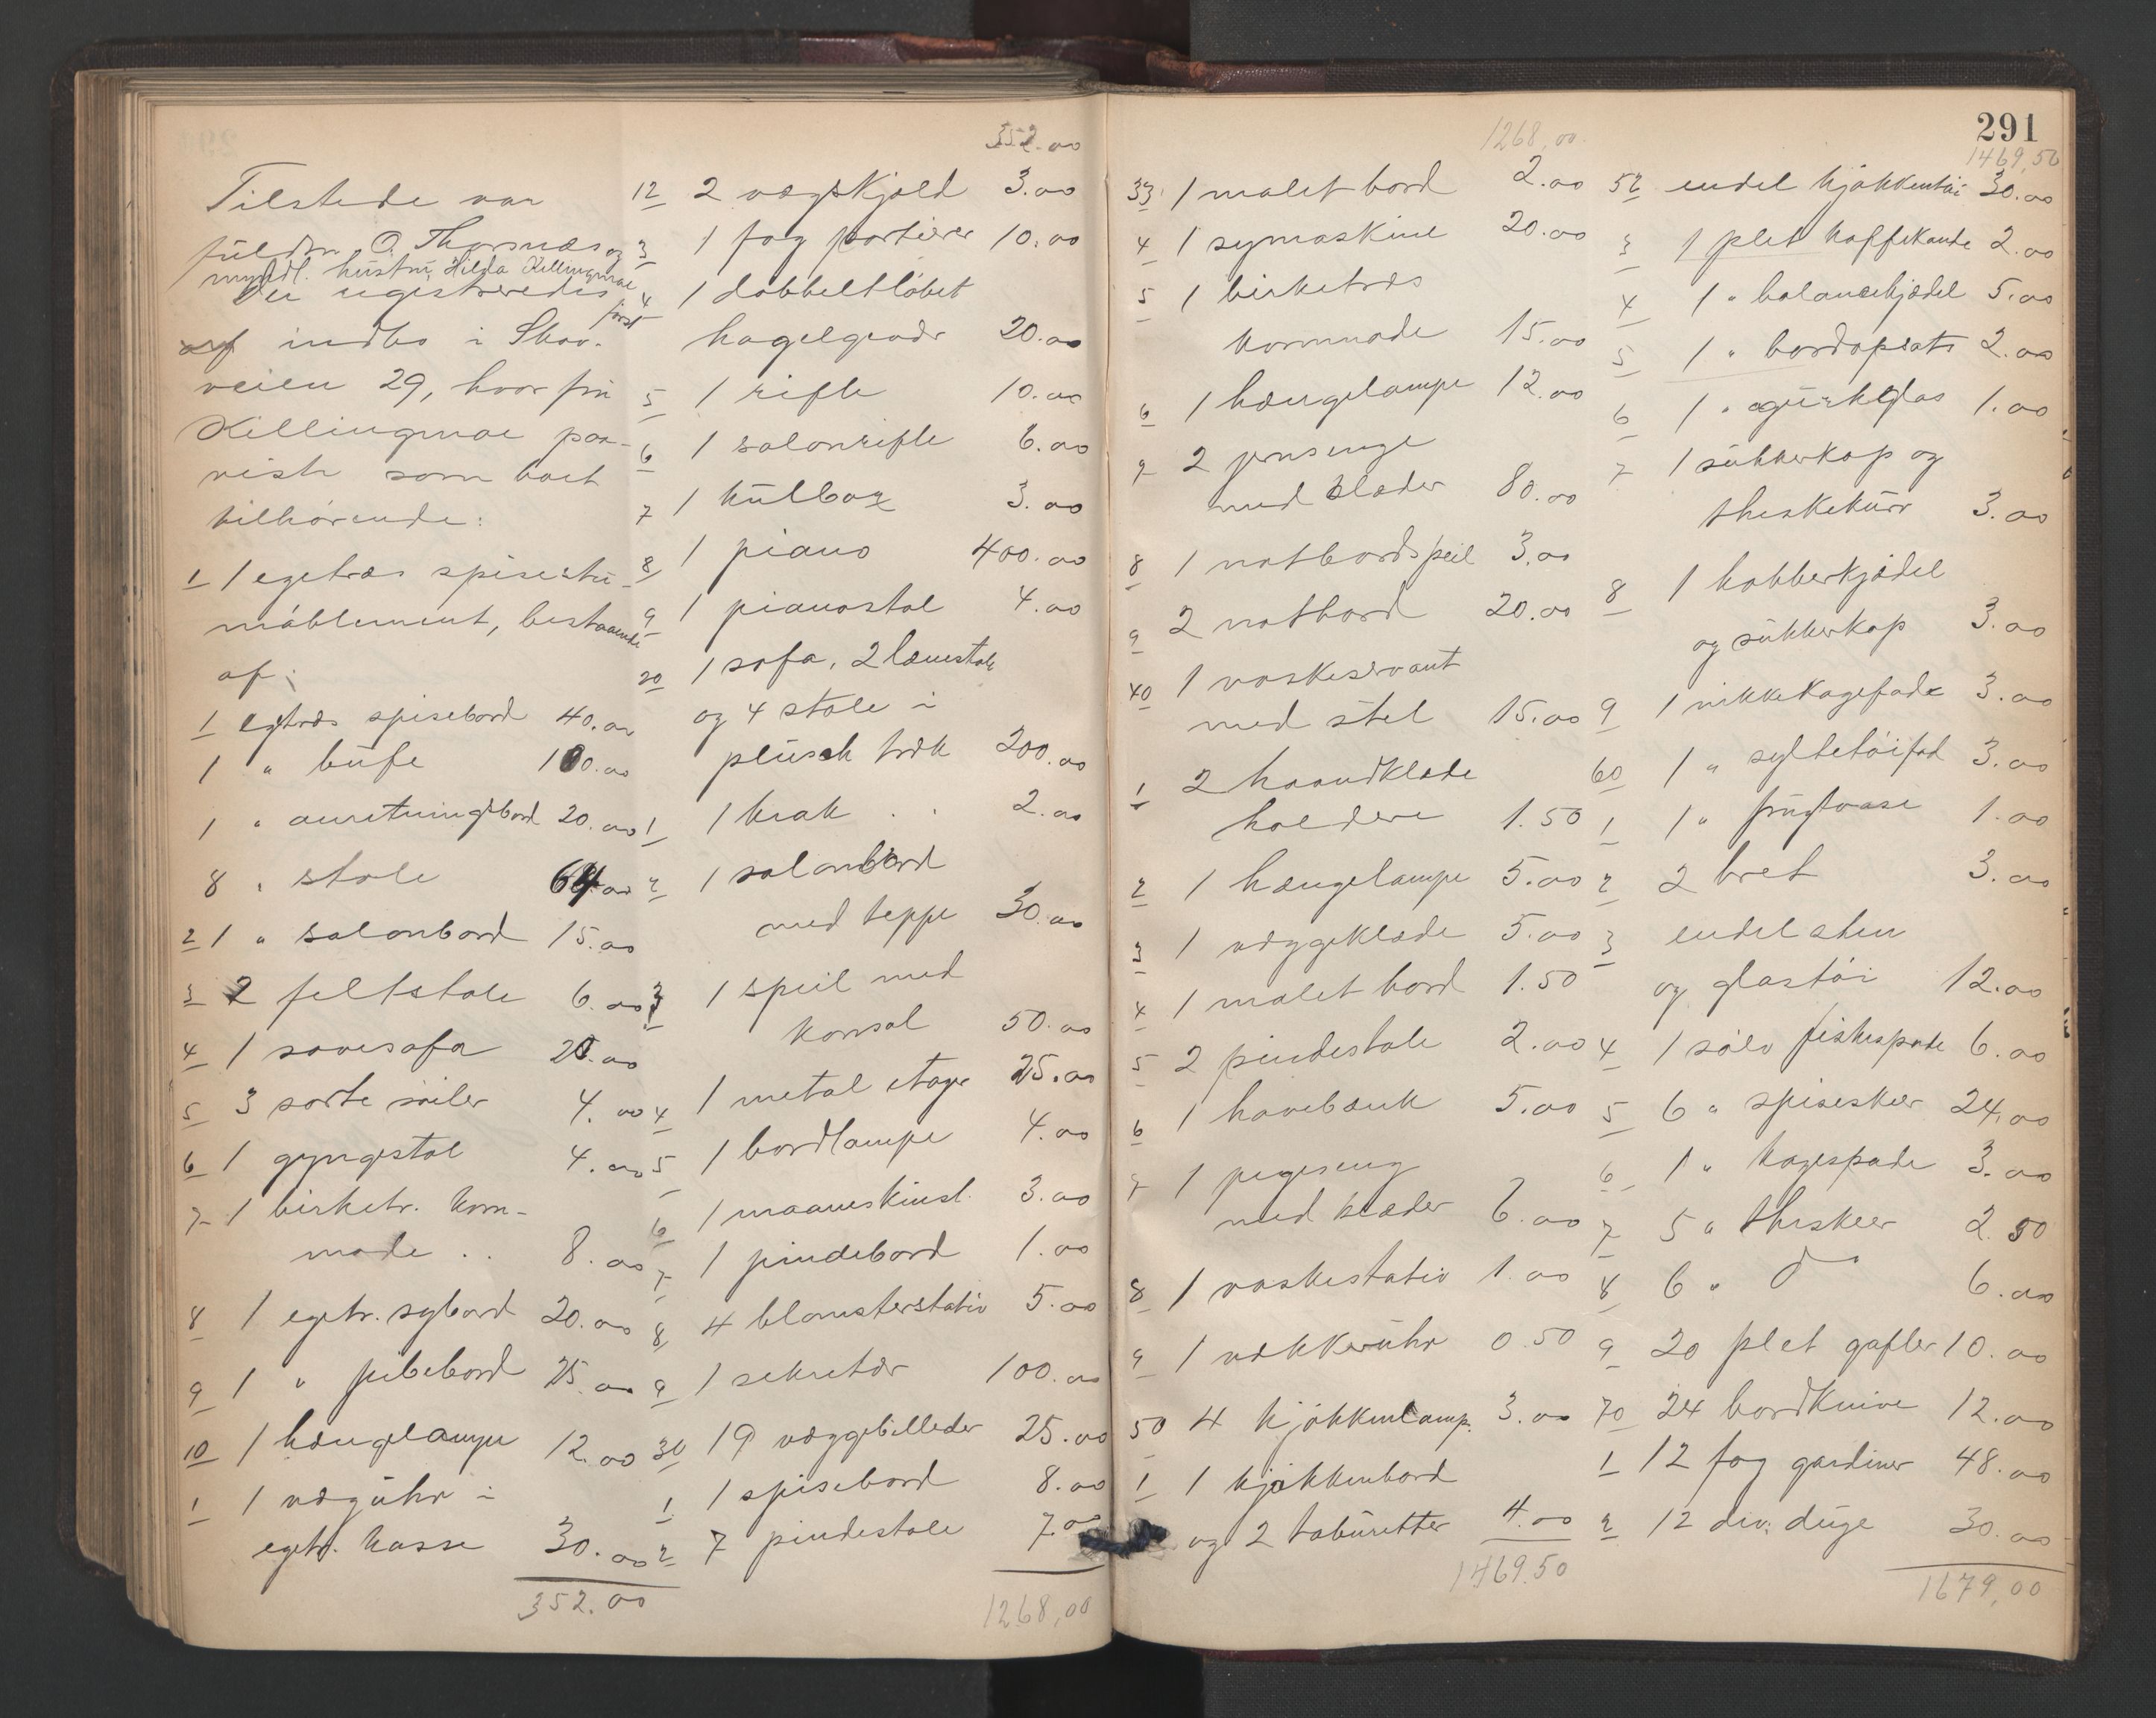 Tilstede var
fuldm. O. Thorsnæs og
myndl. hustru, Hilda Killingmoe
Der registreredes først
indbo i Skov-
veien 29, hvor fru
Killingmoe paa-
viste som boet
tilhørende:
1 1 egetræs spisestu-
møblement, bestaaende
af:
1 egtræs spisebord 40.00
1 " büfe 100.00
1 " anretningsbord 20.00
8 " stole 64.00
2 1 " salonbord 15.00
3 2 feltstole 6.00
4 1 sovesofa 20.00
5 3 sorte søiler 4.00
6 1 gyngestol 4.00
7 1 birketr. kom-
mode .. 8.00
8 1 egetr. sybord 20.00
9 1 " pibebord 25.00
10 1 hængelampe 12.00
1 1 vægühr i
egetr. kasse 30.00
352.00
352.00
12 2 vægskjold 3.00
3 1 fag portierer 10.00
4 1 dobbeltløbet
hagelgevær 20.00
5 1 rifle 10.00
6 1 salonrifle 6.00
7 1 külbox 3.00
8 1 piano 400.00
9 1 pianostol 4.00
20 1 sofa, 2 lænestole
og 4 stole i
plüsch træk 200.00
1 1 krak . . 2.00
2 1 salonbord
med teppe 30.00
3 1 speil med
konsol 50.00
4 1 metal etager 25.00
5 1 bordlampe 4.00
6 1 maaneskinsl. 3.00
7 1 pindebord 1.00
8 4 blomsterstativ 5.00
9 1 sekretær 100.00
30 19 væggebilleder 25.00
1 1 spisebord 8.00
2 7 pindestole 7.00
1268,00
291
1268,00
33 1 malet bord 2.00
4 1 symaskine 20.00
5 1 birketræs
kommode 15.00
6 1 hængelampe 12.00
7 2 jernsenge
med klæder 80.00
8 1 natbordspeil 3.00
9 2 natbord 20.00
40 1 vaskeservant
med stel 15.00
1 2 haandklæde
holdere 1.50
2 1 hængelampe 5.00
3 1 væggeklæde 5.00
4 1 malet bord 1.50
5 2 pindestole 2.00
6 1 havebænk 5.00
7 1 pigeseng
med klæder 6.00
8 1 vaskestativ 1.00
9 1 vækkerühr 0.50
50 4 kjøkkenlamp. 3.00
1 1 kjøkkenbord
og 2 tabüretter 4.00
1469.50
1469,50
52 endel kjøkkentøi 30.00
3 1 plet kaffekande 2.00
4 1 " balancekjedel 5.00
5 1 " bordopsats 2.00
6 1 " agürkglas 1.00
7 1 sükkerkop og
theskekürv 3.00
8 1 kobberkjedel
og sükkerkop 3.00
9 1 nikkelkagefad 3.00
60 1 " syltetøifad 3.00
1 1 " frügtvase 1.00
2 2 bret 3.00
3 endel sten
og glastøi 12.00
4 1 sølv fiskespade 6.00
5 6 " spiseskeer 24.00
6 1 " kagespade 3.00
7 5 " theskeer 2.50
8 6 " do 6.00
9 20 plet gafler 10.00
70 24 bordknive 12.00
1 12 fag gardiner 48.00
2 12 div. düge 30.00
1679,00